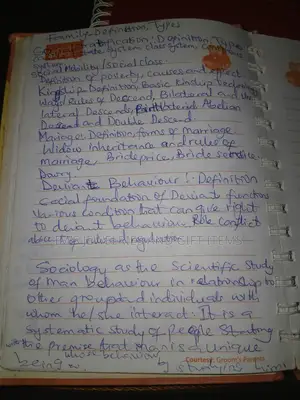 Family: Definition, Types
Social Stratification: Definition, Types
Caste system, class system,
system
Social Mobility/social class
Definition of poverty, causes and effect
Kinship: Definition, Basic kinship
Rules of Descend, Bilateral and
lateral Descend,
Descend and Double Descend
Marriage: Definition, forms of Marriage
Widow Inheritance and rules of
marriage, Bride price, Bride service
Dowry
Deviant Behaviour: Definition
Social foundation of Deviant function
Various condition that can give rise to
to deviant behaviour, Role Conflict
rules and regulation
Sociology as the Scientific Study
of man behaviour in relationship to
other group and individuals with
whom he/she interact. It is a
systematic study of people Starting
the premise that man is a Unique
being whose behaviour by studying him
Courtesy: Groom's Parents